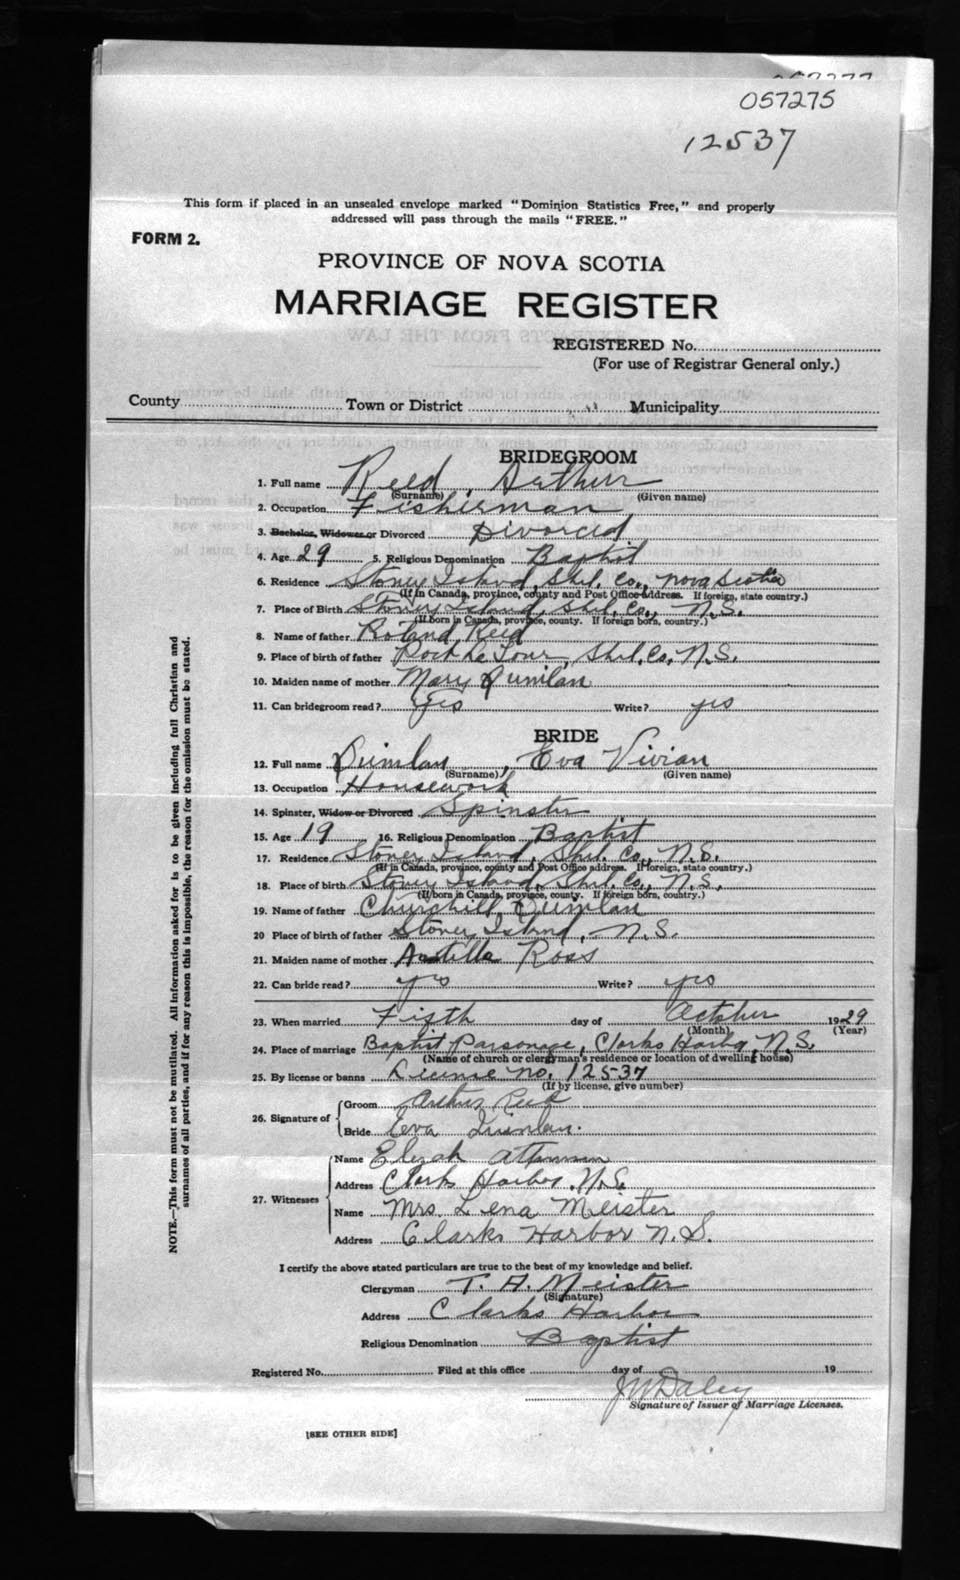 057277
057275
12537
This form if placed in an unsealed envelope marked "Dominion Statistics Free," and properly
addressed will pass through the mails "FREE."
FORM 2.
PROVINCE OF NOVA SCOTIA
MARRIAGE REGISTER
REGISTERED No.
(For use of Registrar General only.)
County Town or District Municipality
BRIDEGROOM
1. Full name Reed, Arthur
(Surname) (Given name)
2. Occupation Fisherman
3. Bachelor, Widower or Divorced Divorced
4. Age 29 5. Religious Denomination Baptist
6. Residence Stoney Island, Shel. Co., Nova Scotia
(If in Canada, province, county and Post Office address. If foreign, state country.)
7. Place of Birth Stoney Island, Shel. Co., N.S.
(If born in Canada, province, county. If foreign born, country.)
8. Name of father Roland Reed
9. Place of birth of father Port La Tour, Shel. Co. N.S.
10. Maiden name of mother Mary Quinlan
11. Can bridegroom read? Yes Write? yes
BRIDE
12. Full name Quinlan, Eva Vivian
(Surname) (Given name)
13. Occupation Housework
14. Spinster, Widow or Divorced Spinster
15. Age 19 16. Religious Denomination Baptist
17. Residence Stoney Island, Shel. Co., N.S.
(If in Canada, province, county and Post Office address. If foreign, state country.)
18. Place of birth Stoney Island, Shel. Co., N.S.
(If born in Canada, province, county. If foreign born, country.)
19. Name of father Churchill Quinlan
20 Place of birth of father Stoney Island, N.S.
21. Maiden name of mother Ross
22. Can bride read? yes Write? yes
23. When married Fifth day of October 1929
(Month) (Year)
24. Place of marriage Baptist Parsonage, Clarks Harbor, N.S.
(Name of church or clergyman's residence or location of dwelling house)
25. By license or banns License No. 12537
(If by license, give number)
26. Signature of Groom Arthur Reed
Bride Eva Quinlan.
27. Witnesses Name Elizah Atkinson
Address Clarks Harbor N.S.
Name Mrs. Lena Meister
Address Clarks Harbor N.S.
I certify the above stated particulars are true to the best of my knowledge and belief.
Clergyman T. A. Meister
(Signature)
Address Clarks Harbor
Religious Denomination Baptist
Registered No. Filed at this office day of 19
J W Daley
Signature of Issuer of Marriage Licenses.
[SEE OTHER SIDE]
NOTE.—This form must not be mutilated. All information asked for is to be given including full Christian and
surnames of all parties, and if for any reason this is impossible, the reason for the omission must be stated.